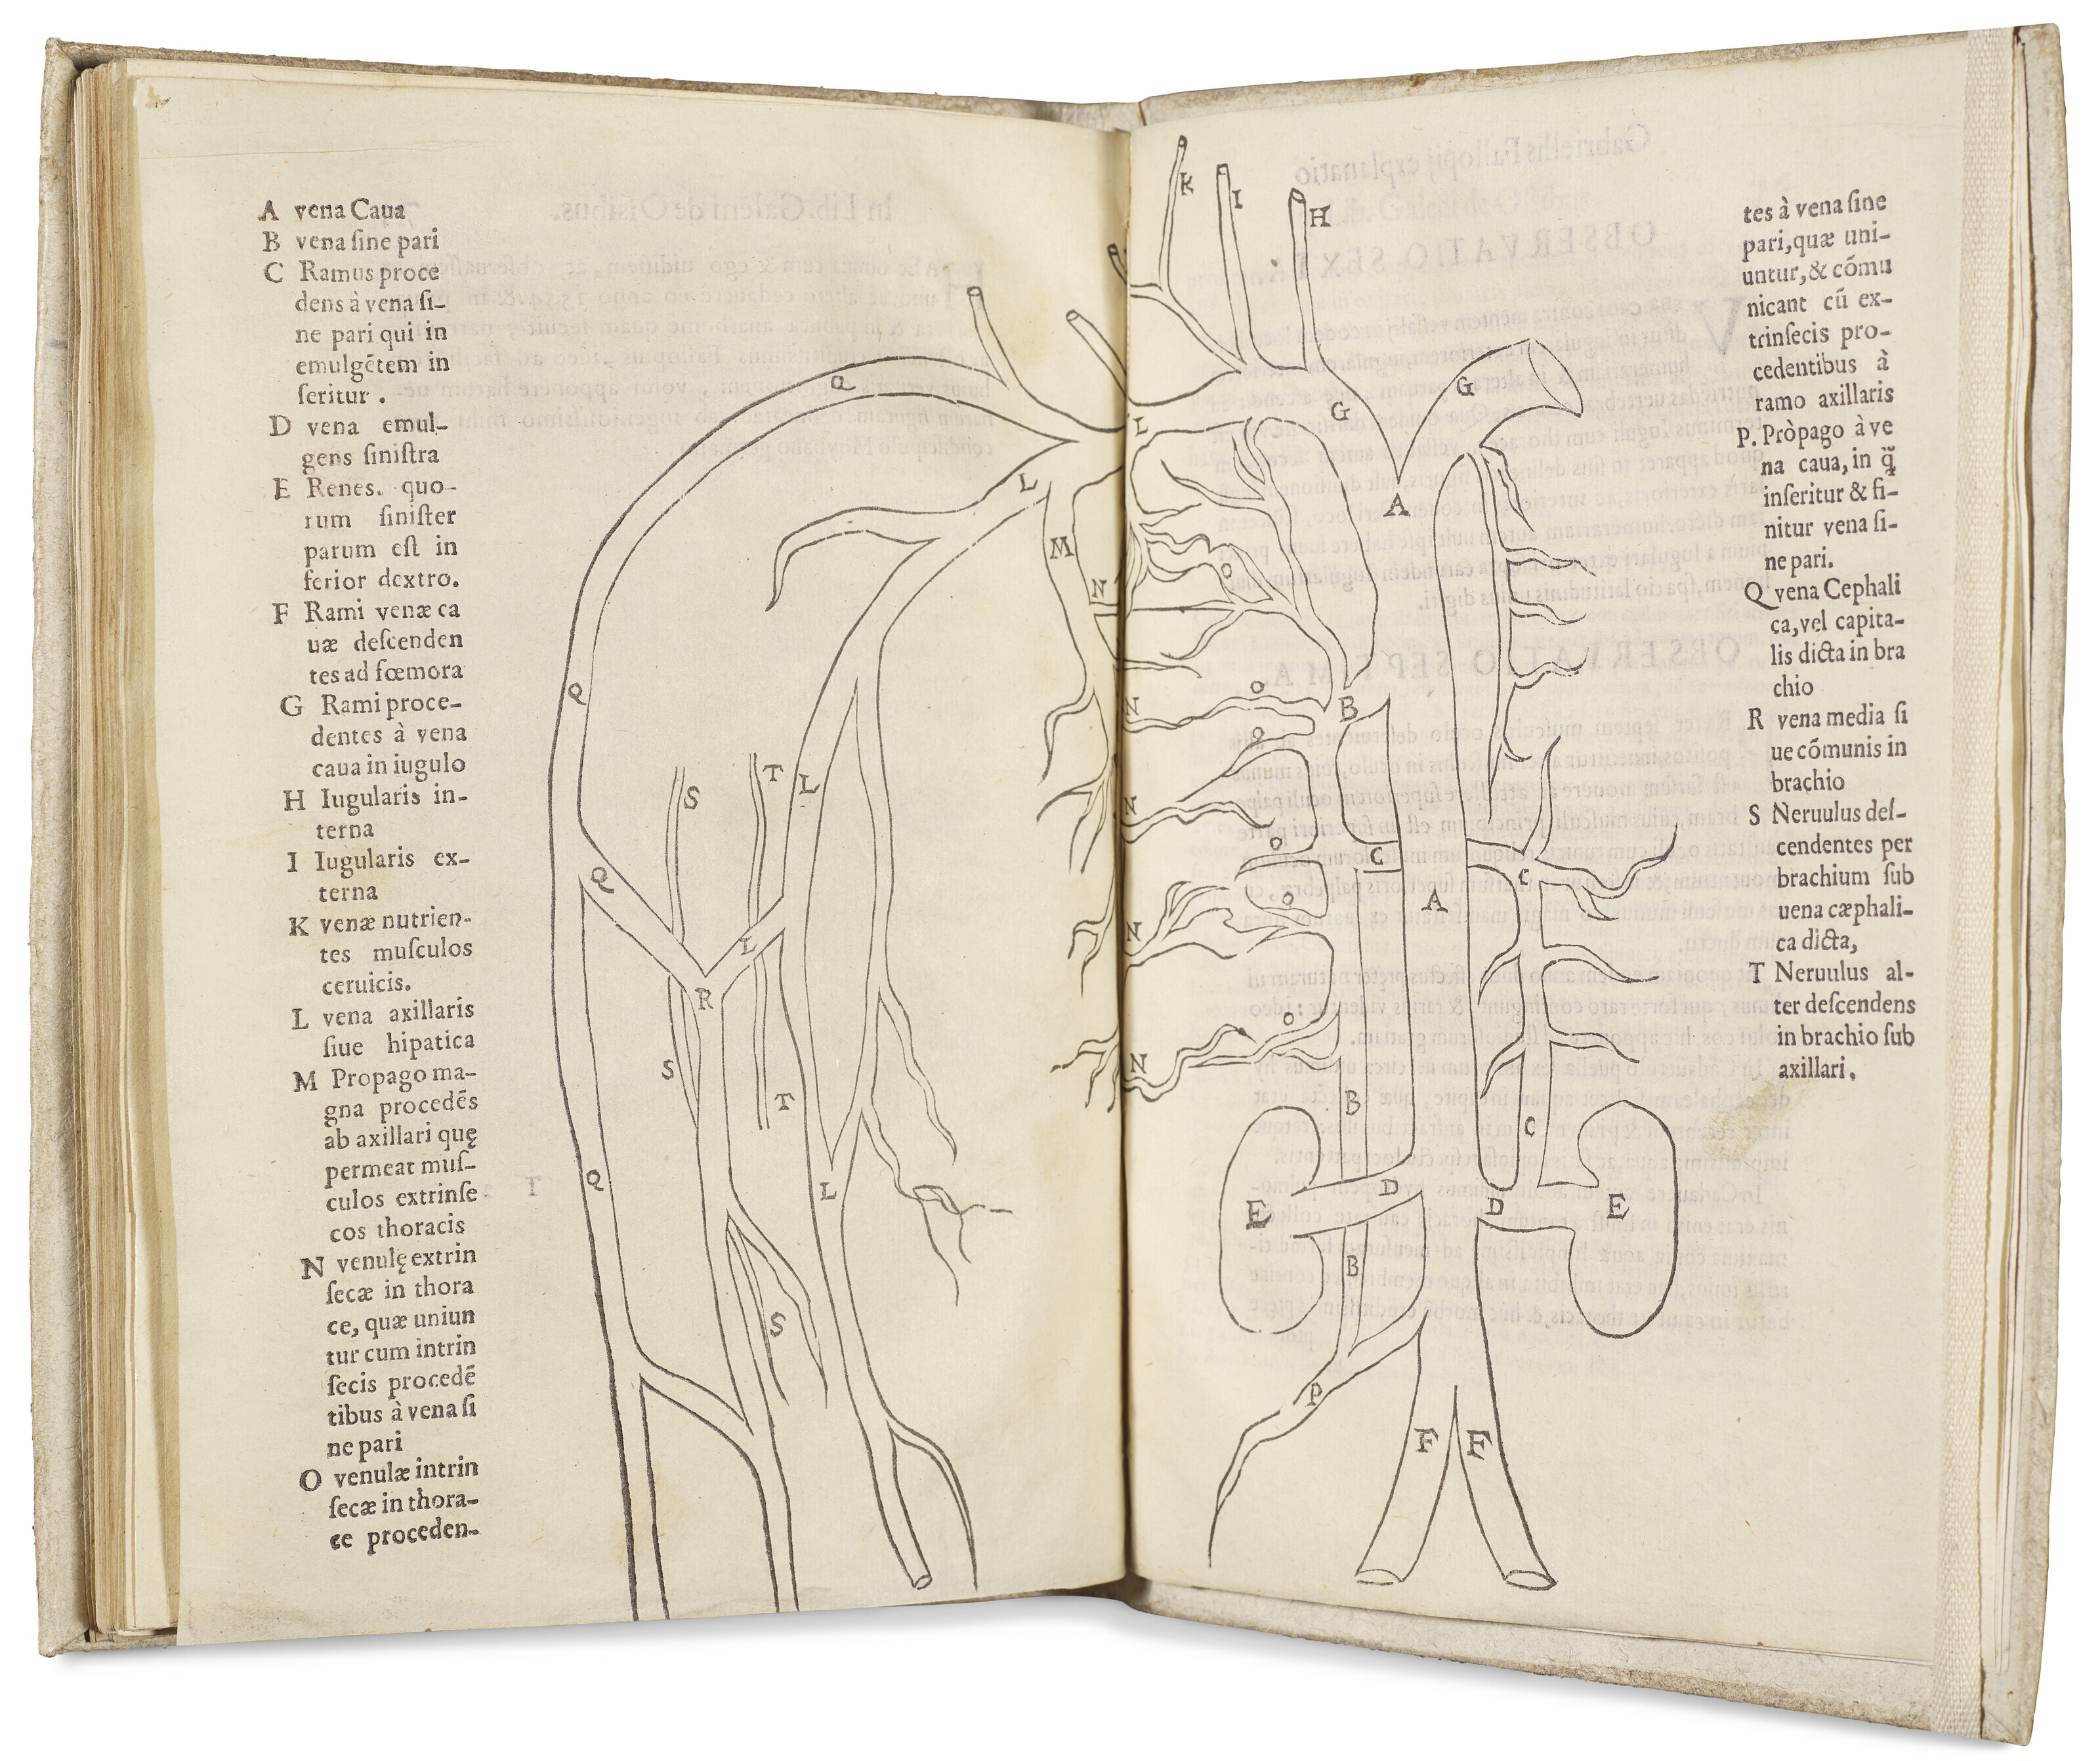 A vena Caua
B vena ſine pari
C Ramus proce
dens à vena ſi-
ne pari qui in
emulgētem in
ſeritur .
D vena emul-
gens ſiniſtra
E Renes. quo-
rum ſiniſter
parum eſt in
ferior dextro.
F Rami venæ ca
uæ deſcenden
tes ad fœmora
G Rami proce-
dentes à vena
caua in iugulo
H Iugularis in-
terna
I Iugularis ex-
terna
K venæ nutrien-
tes muſculos
ceruicis.
L vena axillaris
ſiue hipatica
M Propago ma-
gna procedēs
ab axillari quę
permeat muſ-
culos extrinſe
cos thoracis
N venulę extrin
ſecæ in thora
ce, quæ uniun
tur cum intrin
ſecis procedē
tibus à vena ſi
ne pari
O venulæ intrin
ſecæ in thora-
ce proceden-
Q
Q
Q
Q
S
T
L
L
R
S
T
L
S
L
M
N
K
I
H
L
G
G
A
O
B
N
O
O
N
O
C
C
A
O
N
O
N
B
C
E
D
D
E
B
P
F
F
tes à vena ſine
pari, quæ uni-
untur, & cōmu
nicant cū ex-
trinſecis pro-
cedentibus à
ramo axillaris
P. Pròpago à ve
na caua, in q̃
inſeritur & fi-
nitur vena ſi-
ne pari.
Q vena Cephali
ca, vel capita-
lis dicta in bra
chio
R vena media ſi
ue cōmunis in
brachio
S Neruulus deſ-
cendentes per
brachium ſub
uena cæphali-
ca dicta,
T Neruulus al-
ter deſcendens
in brachio ſub
axillari.